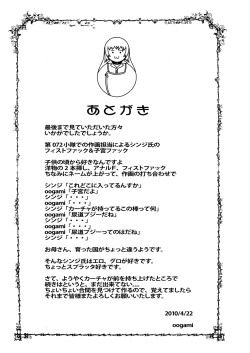 あとがき
最後まで見ていただいた方々
いかがでしたでしょうか。
第072小隊での作画担当によるシンジ氏の
フィストファック&子宮ファック
子供の頃から好きなんですよ
洋物の2本挿し、アナルF、フィストファック
ちなみにネームが上がって、作画の打ち合わせで
シンジ「これどこに入ってるんすか」
oogami「子宮だよ」
シンジ「・・・」
シンジ「カーチャが持ってるこの棒って何」
oogami「尿道ブジーだね」
シンジ「・・・」
シンジ「・・・」
oogami「尿道ブジーってのはだね」
シンジ「・・・」
お母さん、育った国がちょっと違うようです。
そんなシンジ氏はエロ、グロが好きです。
ちょっとスプラッタ好きです。
さて、ようやくカーチャが前を持ち上げたところで
続きはというと、まだ出来てない....
ちょいちょい合間を見つけて作るので、覚えてましたら
それまで皆様またよろしくお願いいたします。
2010/4/22
oogami